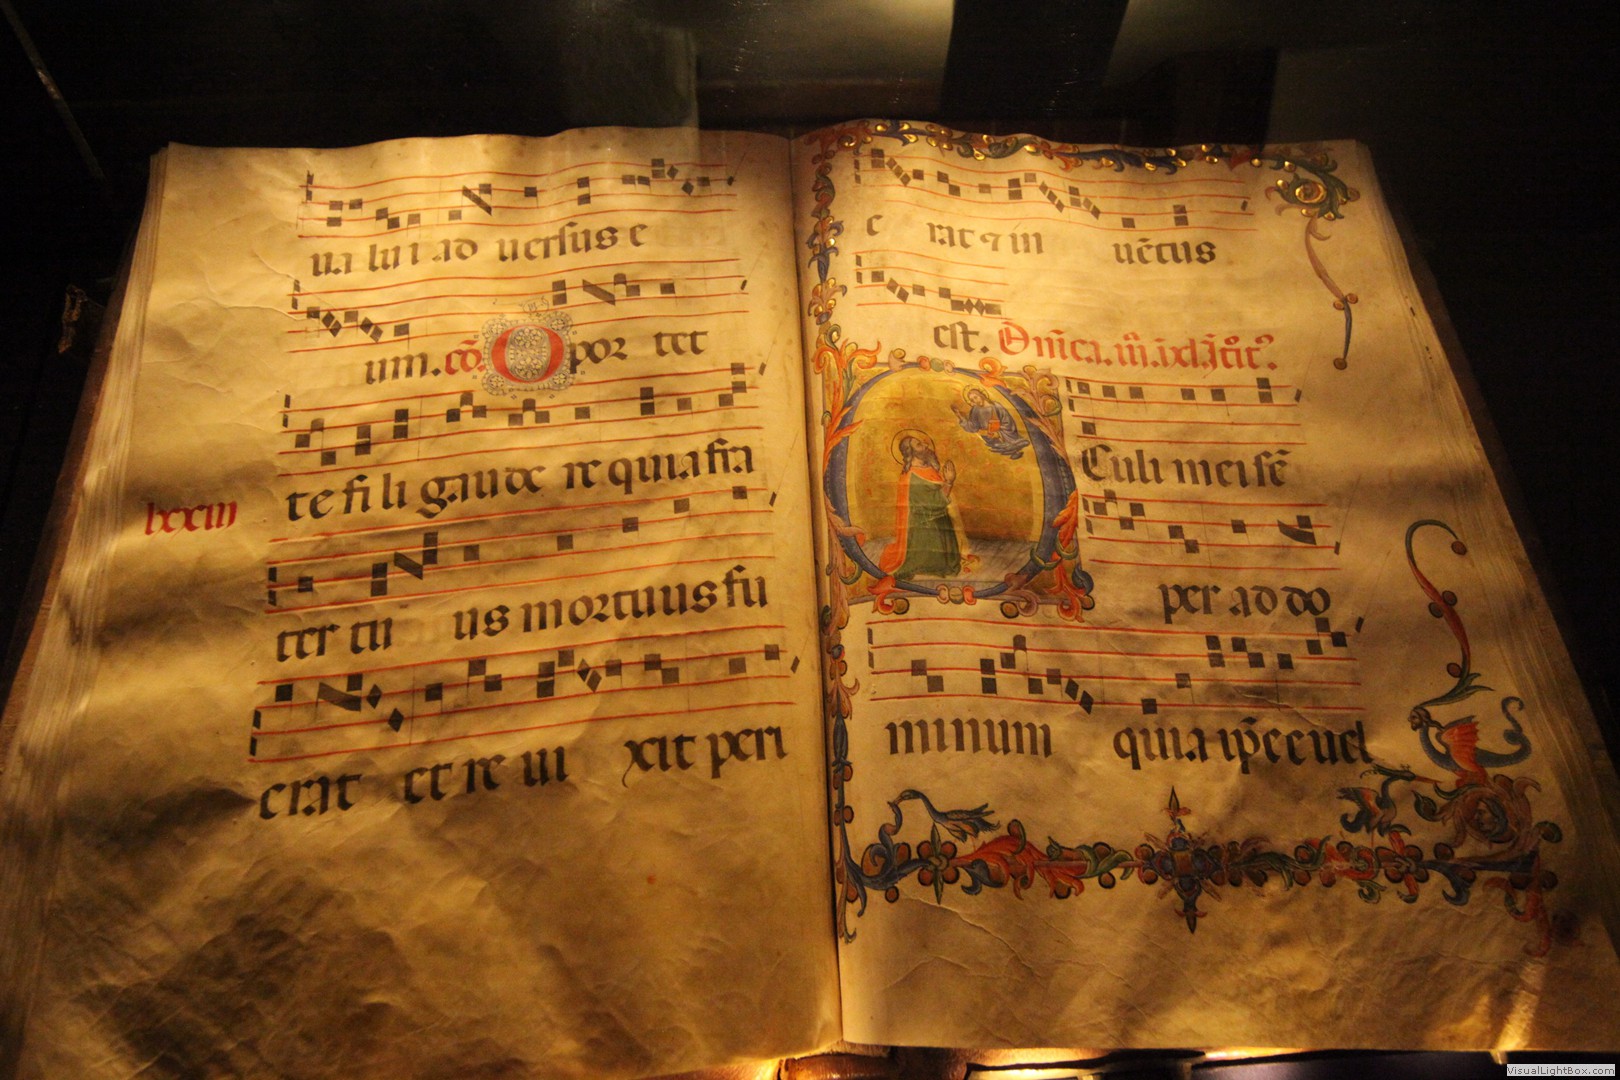 ua lui ad uersus e
um. cō. Opor tet
te fi li gaude re quia fra
lxxiii
ter tu us mortuus fu
erat et re ui xit peri
e rat ⁊ in uētus
est. Dn̄ica. iii. ī xl. ītr̄.
Culi mei sē
per ad do
minum quia ip̄e euel
VisualLightBox.com